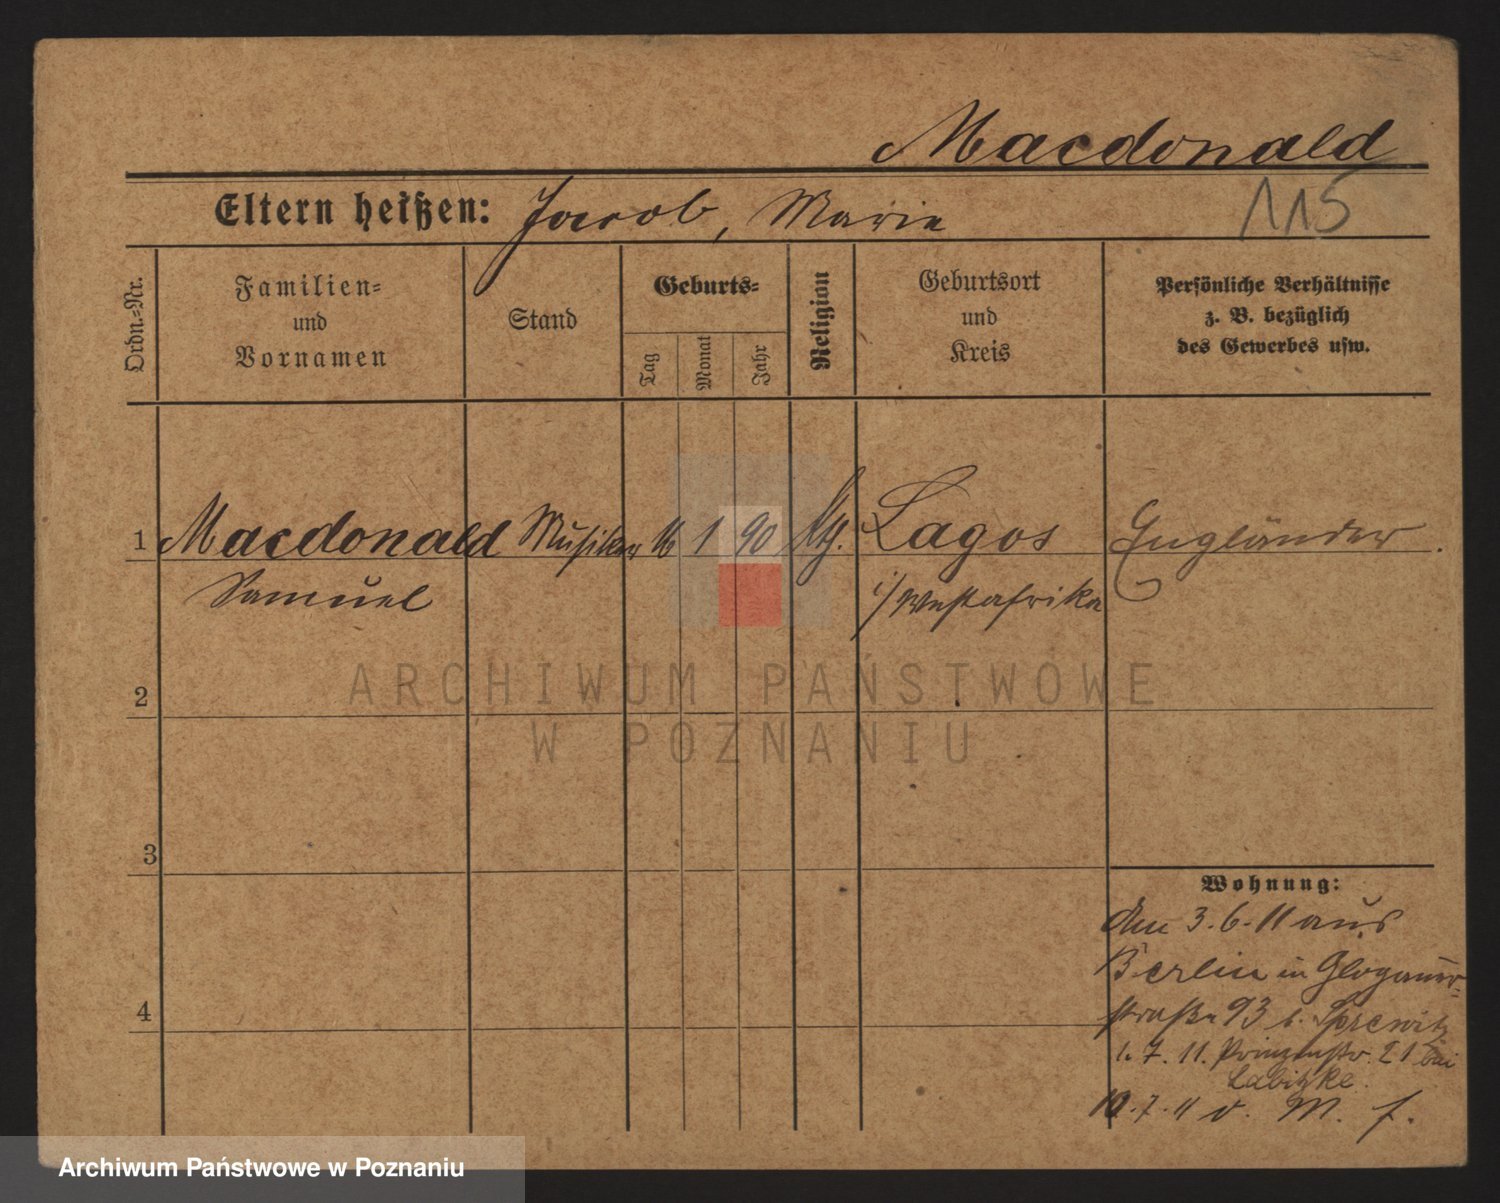 Macdonald
115
Eltern heißen: Jacob, Marie
Ordn.-Nr.
Familien-
und
Vornamen
Stand
Geburts-
Tag
Monat
Jahr
Religion
Geburtsort
und
Kreis
Persönliche Verhältnisse
z. B. bezüglich
des Gewerbes usw.
1 Macdonald Musiker 16 1 90 Lagos Engländer.
Samuel i/Westafrika
2
ARCHIWUM PAŃSTWOWE
W POZNANIU
3
Wohnung:
den 3.6.11 aus
Berlin in Glogauer-
4
straße 93 b.
1.7.11. Prinzenstr. 21 bei
Labitzke.
10.7.11 v. M. f.
Archiwum Państwowe w Poznaniu